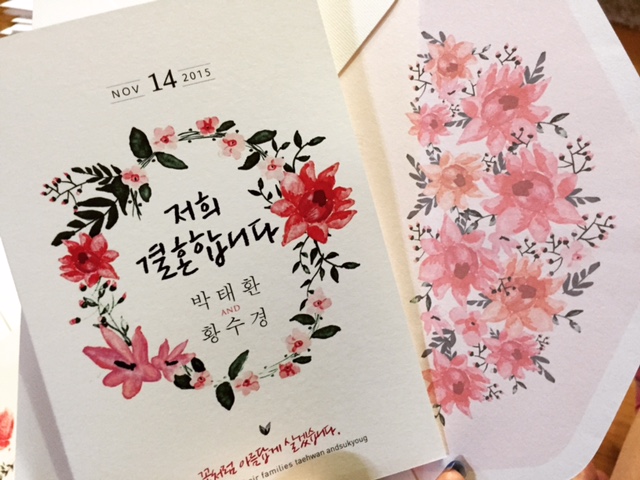 NOV 14 2015
저희
결혼합니다
박태환
AND
황수경
꽃처럼 아름답게 살겠습니다.
families taehwan andsukyoug